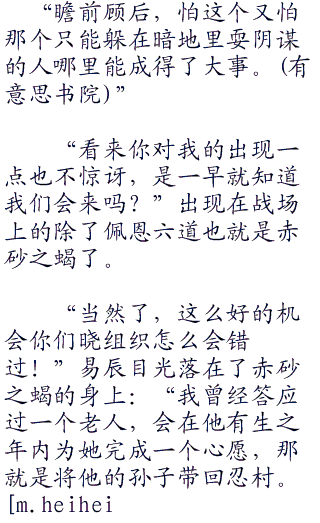 “瞻前顾后，怕这个又怕
那个只能躲在暗地里耍阴谋
的人哪里能成得了大事。(有
意思书院)”
“看来你对我的出现一
点也不惊讶，是一早就知道
我们会来吗？”出现在战场
上的除了佩恩六道也就是赤
砂之蝎了。
“当然了，这么好的机
会你们晓组织怎么会错
过！”易辰目光落在了赤砂
之蝎的身上：“我曾经答应
过一个老人，会在他有生之
年内为她完成一个心愿，那
就是将他的孙子带回忍村。
[m.heihei